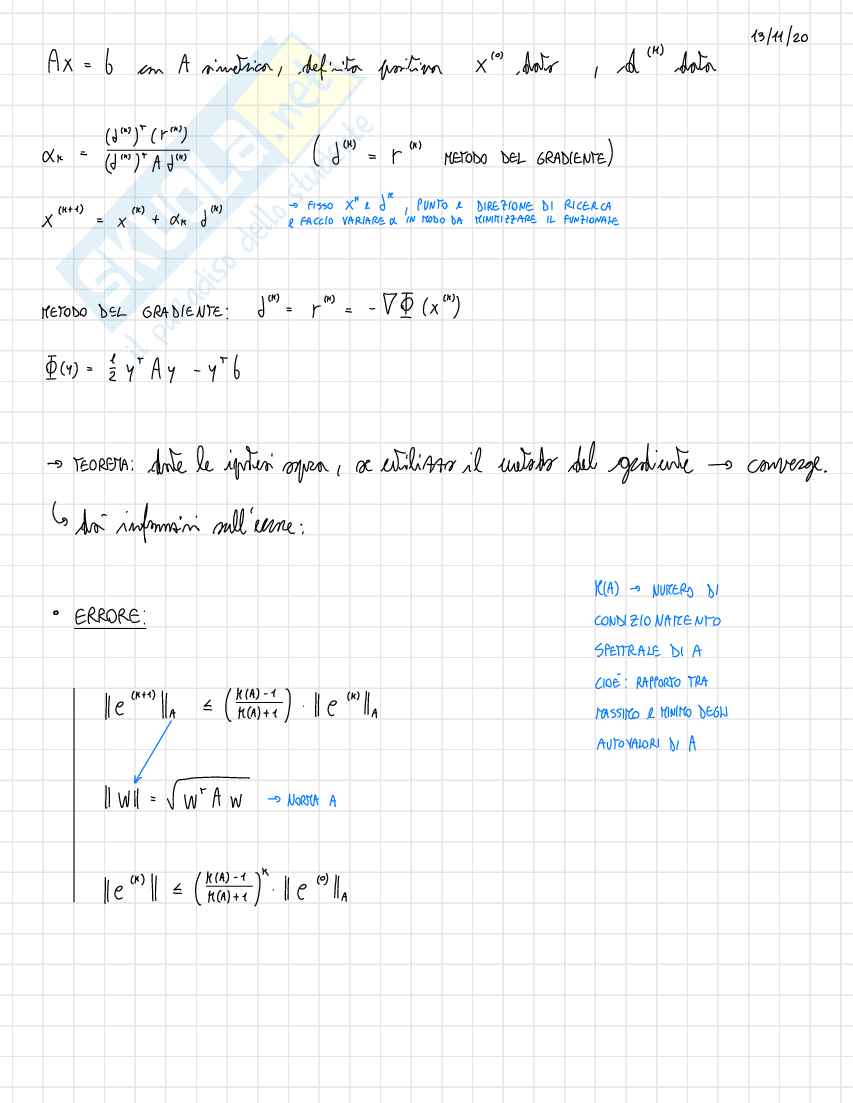 13/11/20
Ax = b con A simmetrica, definita positiva x^(0) dato, d^(k) data
α_k = (d^(k))^T (r^(k)) / (d^(k))^T A d^(k) (d^(k) = r^(k) METODO DEL GRADIENTE)
x^(k+1) = x^(k) + α_k d^(k)
→ FISSO x^k e d^k, PUNTO e DIREZIONE DI RICERCA
e FACCIO VARIARE α IN MODO DA MINIMIZZARE IL FUNZIONALE
METODO DEL GRADIENTE: d^(k) = r^(k) = -∇Φ(x^(k))
Φ(y) = 1/2 y^T A y - y^T b
→ TEOREMA: date le ipotesi sopra, se utilizzo il metodo del gradiente → converge.
↳ dà informazioni sull'errore:
• ERRORE:
||e^(k+1)||_A ≤ (K(A)-1 / K(A)+1) · ||e^(k)||_A
||W|| = √(W^T A W) → NORMA A
||e^(k)|| ≤ (K(A)-1 / K(A)+1)^k · ||e^(0)||_A
K(A) → NUMERO DI
CONDIZIONAMENTO
SPETTRALE DI A
CIOÈ: RAPPORTO TRA
MASSIMO e MINIMO DEGLI
AUTOVALORI DI A
SKUOLA.net
il paradiso dello studente